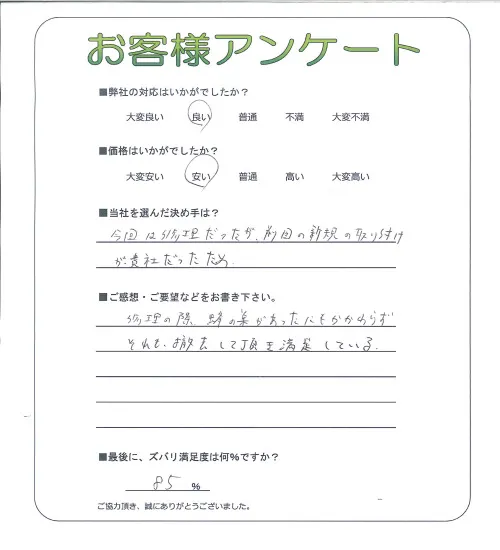 お客様アンケート
■弊社の対応はいかがでしたか?
大変良い 良い 普通 不満 大変不満
■価格はいかがでしたか?
大変安い 安い 普通 高い 大変高い
■当社を選んだ決め手は?
今回は修理だったが、前回の新規の取り付け
が貴社だったため
■ご感想・ご要望などをお書き下さい。
修理の際 蜂の巣があったにもかかわらず
それも、撤去して頂き満足している.
■最後に、ズバリ満足度は何%ですか?
85 %
ご協力頂き、誠にありがとうございました。